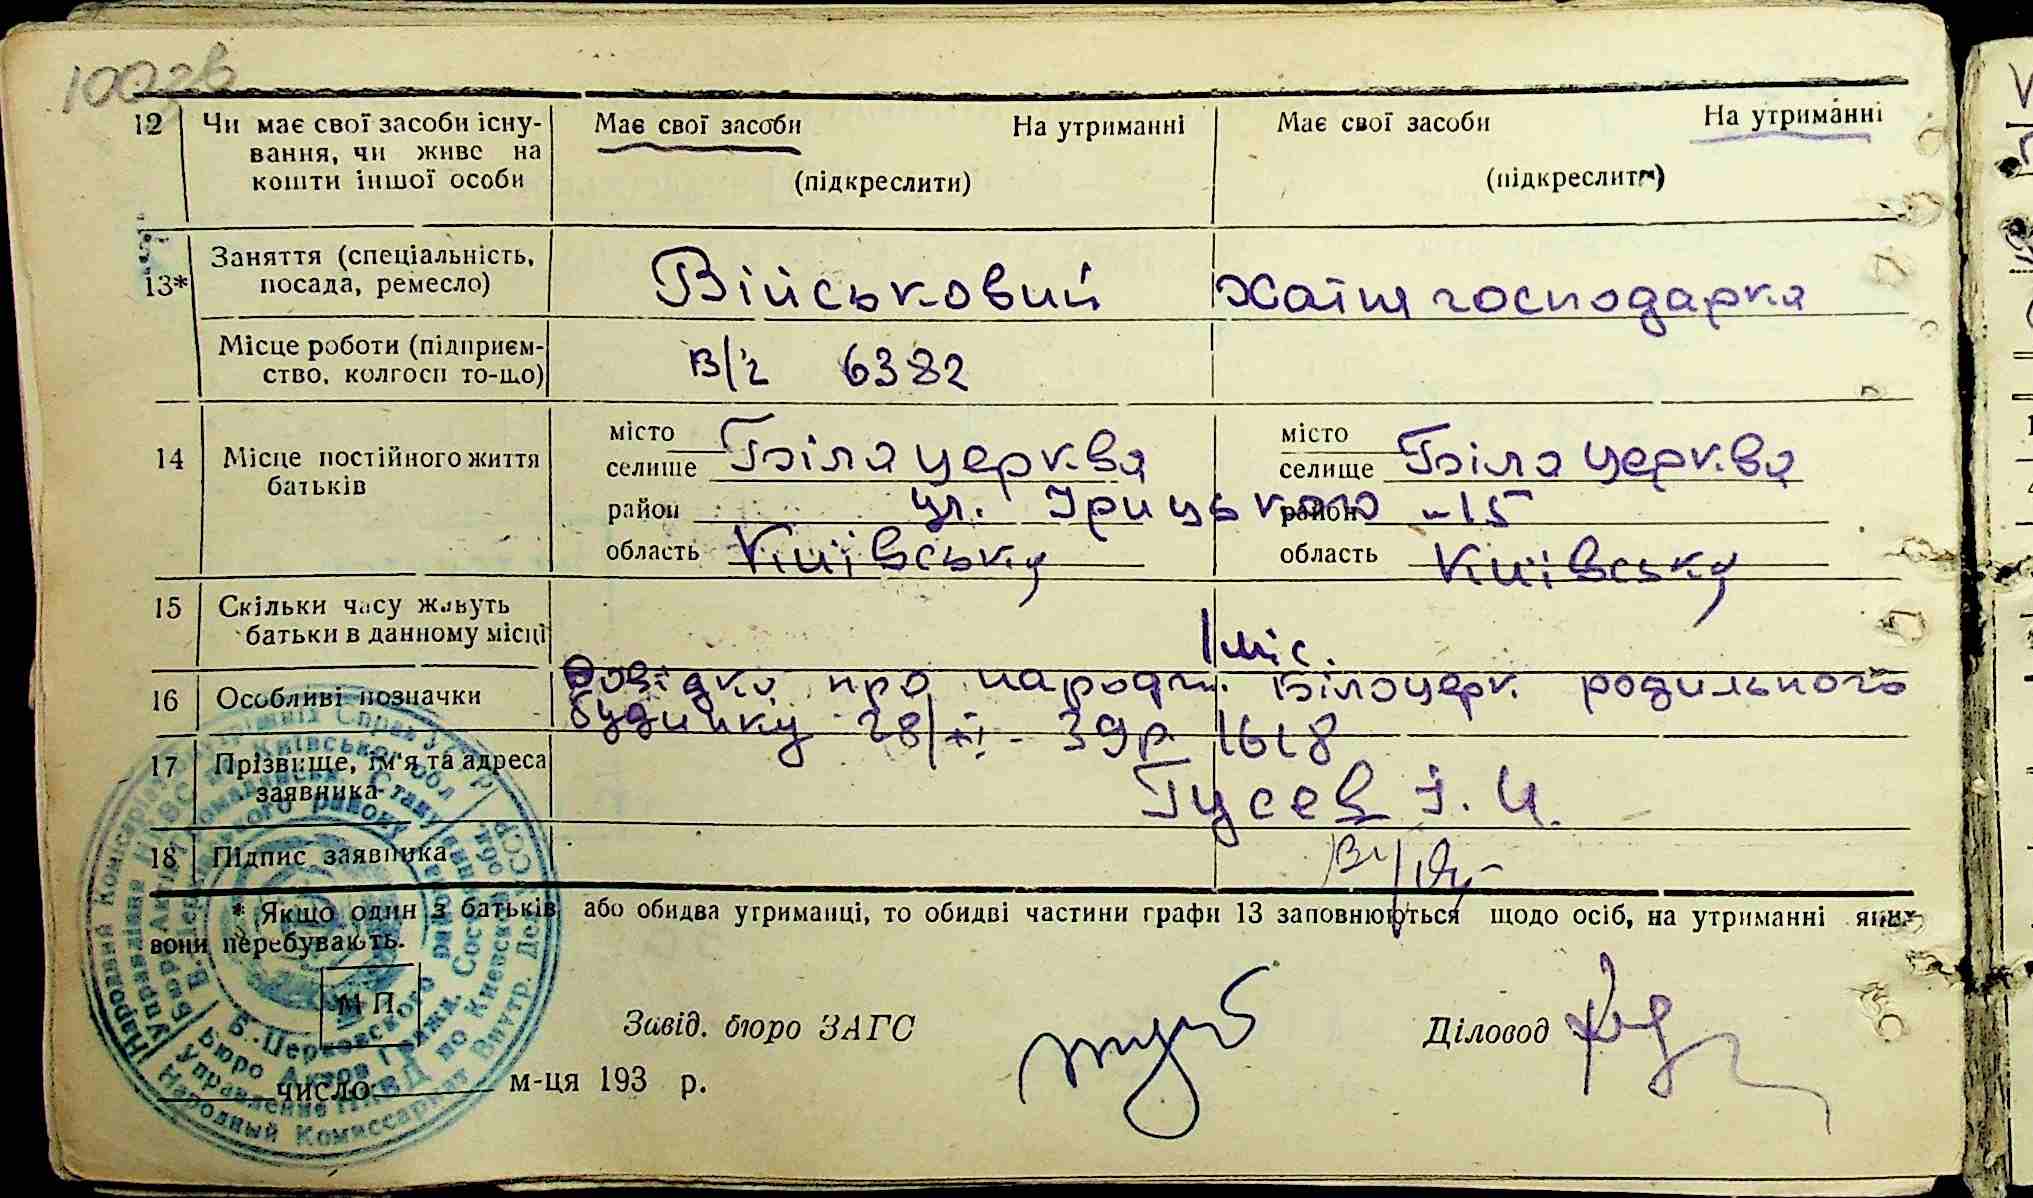 100зв
12 Чи має свої засоби існу- Має свої засоби На утриманні Має свої засоби На утриманні
вання, чи живе на
кошти іншої особи (підкреслити) (підкреслити)
13* Заняття (спеціальність, посада, ремесло) Військовий Хатня господарка
Місце роботи (підприєм- В/ч 6382
ство, колгосп то-що)
14 Місце постійного життя батьків
місто селище Біла церква місто селище Біла церква
район ул. Урицького -15 район
область Київську область Київську
15 Скільки часу живуть
батьки в данному місці 1 міс.
16 Особливі позначки Довідка про народж. Білоцерк родильного
будинку 28/XI - 39р 1618
17 Прізвище, ім'я та адреса
заявника Гусев І. И.
18 Підпис заявника
* Якщо один з батьків, або обидва утриманці, то обидві частини графи 13 заповнюються щодо осіб, на утриманні яких
вони перебувають.
М П.
Завід. бюро ЗАГС Діловод
число м-ця 193 р.
Народний Комісаріат Внутрішніх Справ УССР
Народный Комиссариат Внутр. Дел УССР
Управление НКВД по Киевской обл.
Б.-Церковского